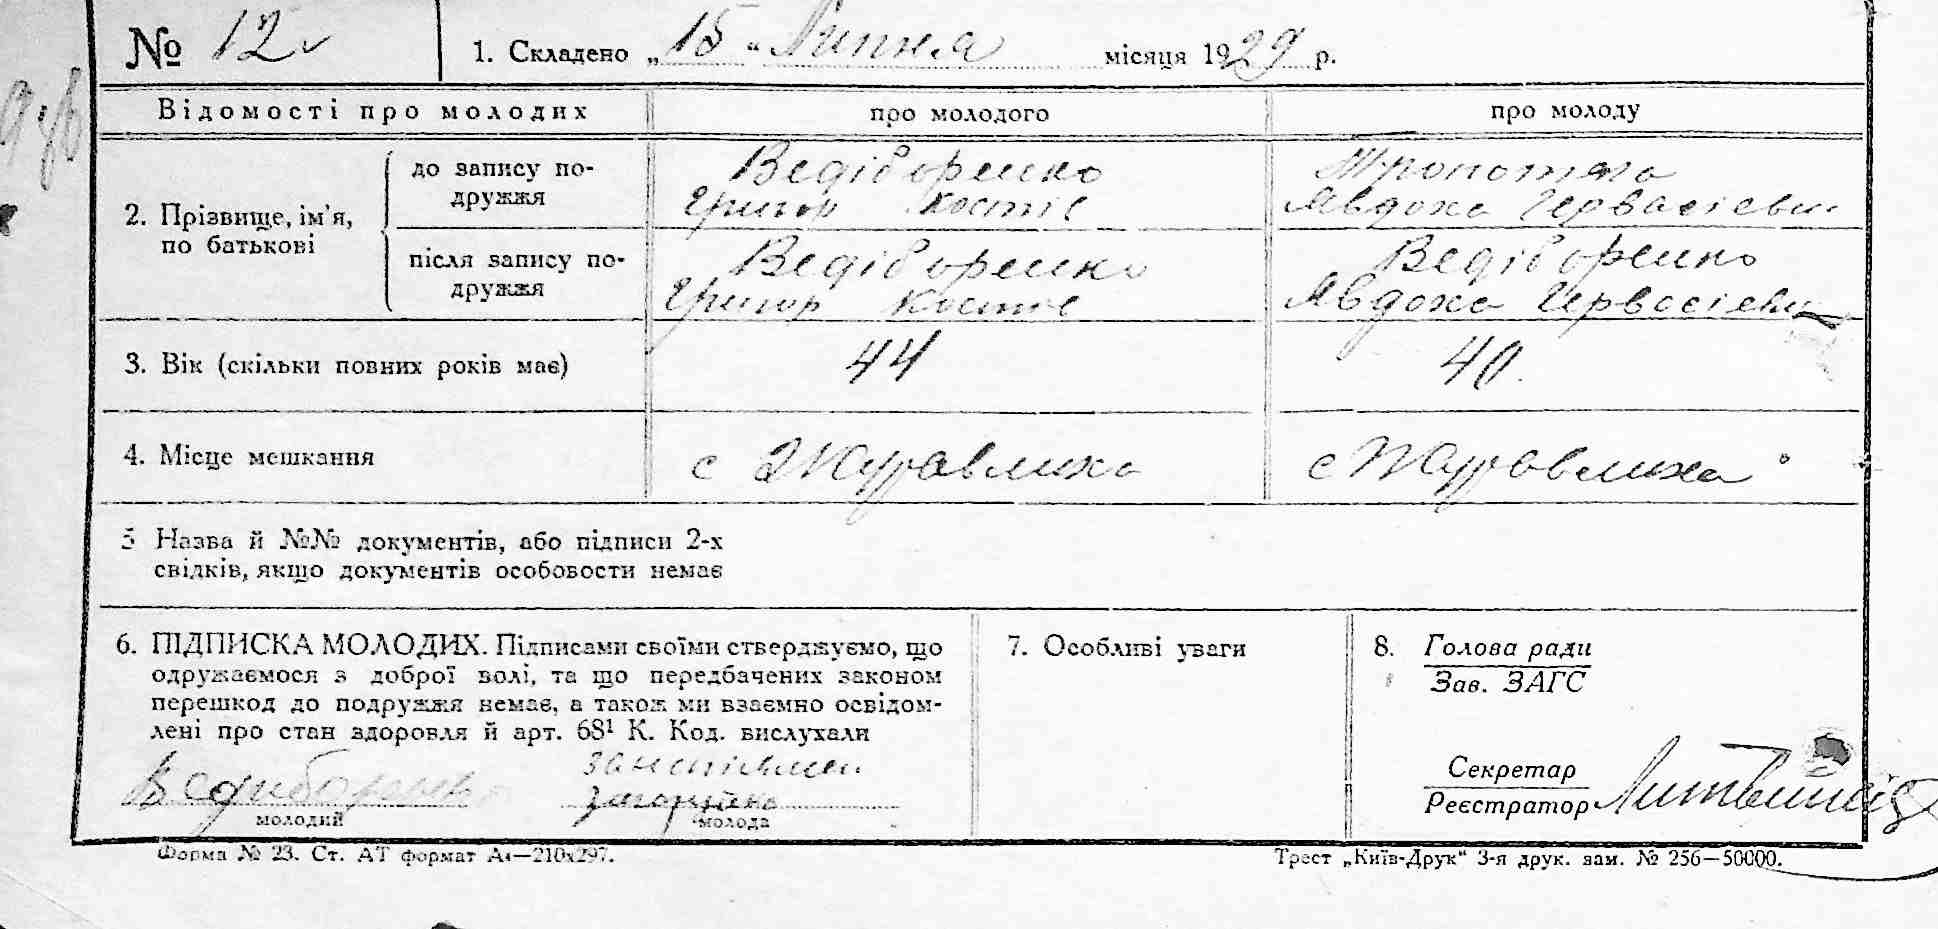 № 12
1. Складено „15“ Липня місяця 1929 р.
Відомості про молодих
про молодого
про молоду
2. Прізвище, ім’я, по батькові
до запису подружжя
Ведіборенко
Григор Костів
Явдоха Гервасієвн
після запису по-
дружжя
Ведіборенко
Григор Костів
Ведіборенко
Явдоха Гервасієвн
3. Вік (скільки повних років має)
44
40
4. Місце мешкання
с Журавлиха
с Журавлиха
5 Назва й №№ документів, або підписи 2-х
свідків, якщо документів особовости немає
6. ПІДПИСКА МОЛОДИХ. Підписами своїми стверджуємо, що
одружаємося з доброї волі, та що передбачених законом
перешкод до подружжя немає, а також ми взаємно освідом-
лені про стан здоровля й арт. 68¹ К. Код. вислухали
Ведиборенко
молодий
молода
7. Особливі уваги
8. Голова ради
Зав. ЗАГС
Секретар
Реєстратор
Форма № 23. Ст. АТ формат А4—210х297.
Трест „Київ-Друк“ 3-я друк. зам. № 256—50000.